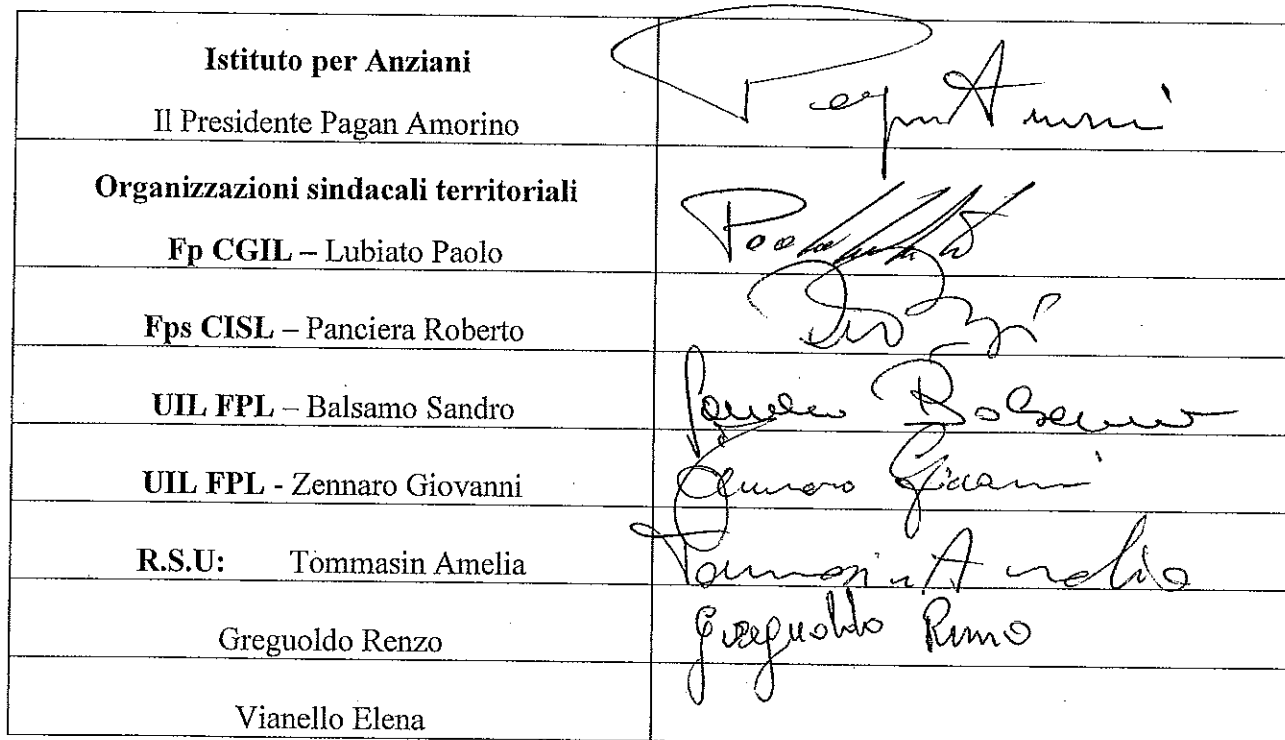 Istituto per Anziani
Il Presidente Pagan Amorino
Organizzazioni sindacali territoriali
Fp CGIL – Lubiato Paolo
Fps CISL – Panciera Roberto
UIL FPL – Balsamo Sandro
Sandro Balsamo
UIL FPL - Zennaro Giovanni
Zennaro Giovanni
R.S.U: Tommasin Amelia
Tommasin Amelia
Greguoldo Renzo
Greguoldo Renzo
Vianello Elena